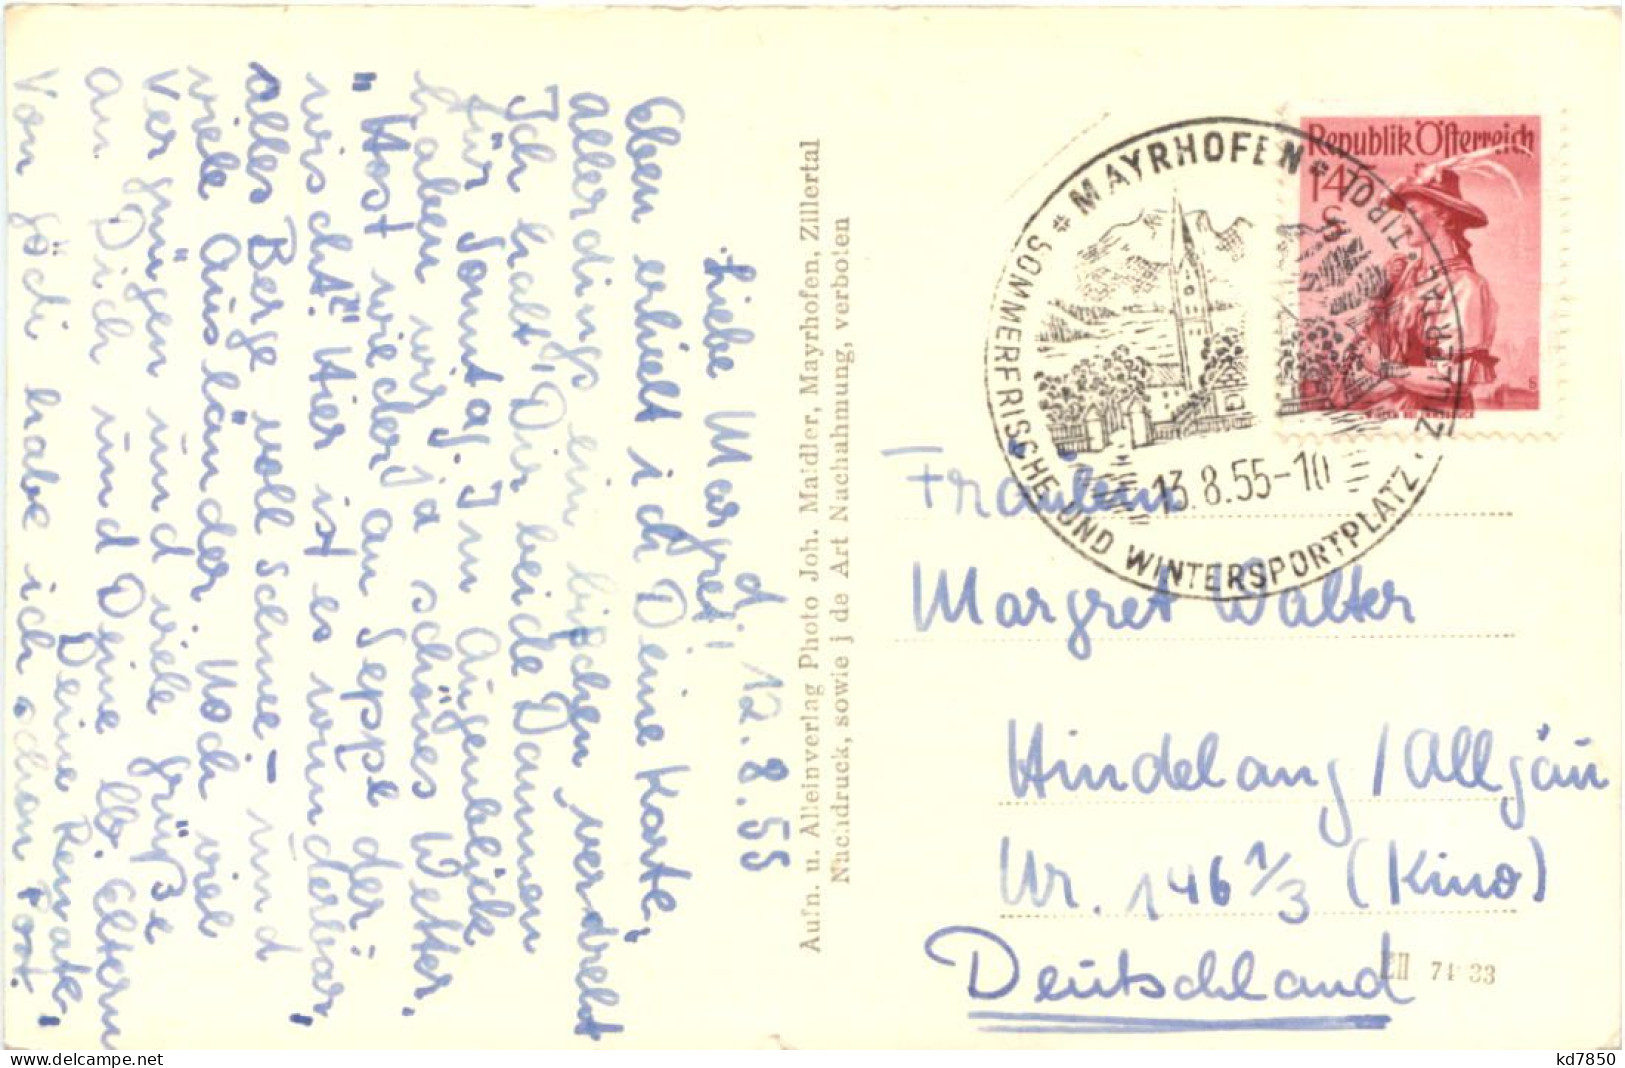 d. 12.8.55
Liebe Margret!
Eben erhielt ich Deine Karte,
allerdings ein bißchen verdreht
Ich halt' Dir beide Daumen
für Sonntag. Im Augenblick
haben wir ja schönes Wetter.
"Host wieder an Seppl der-
wischt?" Hier ist es wunderbar,
alles Berge voll Schnee - und
viele Ausländer. Noch viel
Vergnügen und viele Grüße
an Dich und Deine lb. Eltern
Deine Renate,
Von Gödi habe ich schon Post.
Aufn. u. Alleinverlag Photo Joh. Maidler, Mayrhofen, Zillertal
Nachdruck, sowie jede Art Nachahmung, verboten
* MAYRHOFEN * ZILLERTAL · TIROL
SOMMERFRISCHE UND WINTERSPORTPLATZ ·
13.8.55-10
Republik Österreich
1'40
S
Fräulein
Margret Walter
Hindelang / Allgäu
Nr. 146 1/3 (Kino)
Deutschland
74 33
delcampe.net
kd7850